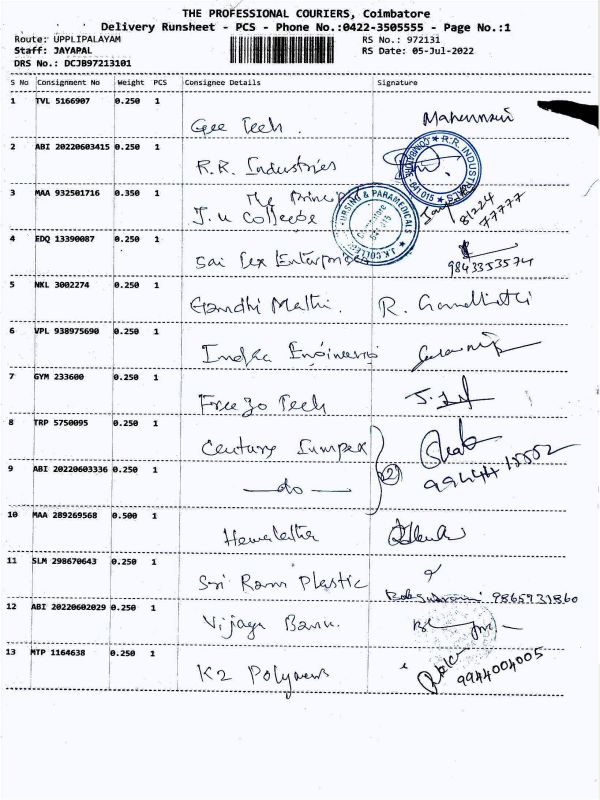 THE PROFESSIONAL COURIERS, Coimbatore
Delivery Runsheet - PCS - Phone No.:0422-3505555 - Page No.:1
Route: UPPLIPALAYAM RS No.: 972131
Staff: JAYAPAL RS Date: 05-Jul-2022
DRS No.: DCJB97213101
S No Consignment No Weight PCS Consignee Details Signature
1 TVL 5166907 0.250 1
Gee Tech.
2 ABI 20220603415 0.250 1
R.R. Industries
R.R. INDUSTRIES COIMBATORE 641 015
3 MAA 932501716 0.350 1
The Principal
J.K College
NURSING & PARAMEDICALS J.K. COLLEGE
81224
77777
4 EDQ 13390087 0.250 1
Sai Tex Enterprises
9843353574
5 NKL 3002274 0.250 1
Gandhi Mathi. R. Gandhimathi
6 VPL 938975690 0.250 1
Indka Engineering
7 GYM 233600 0.250 1
Freezo Tech
8 TRP 5750095 0.250 1
Century Lumpex
(2)
9 ABI 20220603336 0.250 1
—do—
10 MAA 289269568 0.500 1
Hemalatha
11 SLM 298670643 0.250 1
Sri Ram Plastic
9865931860
12 ABI 20220602029 0.250 1
Vijaya Banu.
13 MTP 1164638 0.250 1
K2 Polymers
9944004005